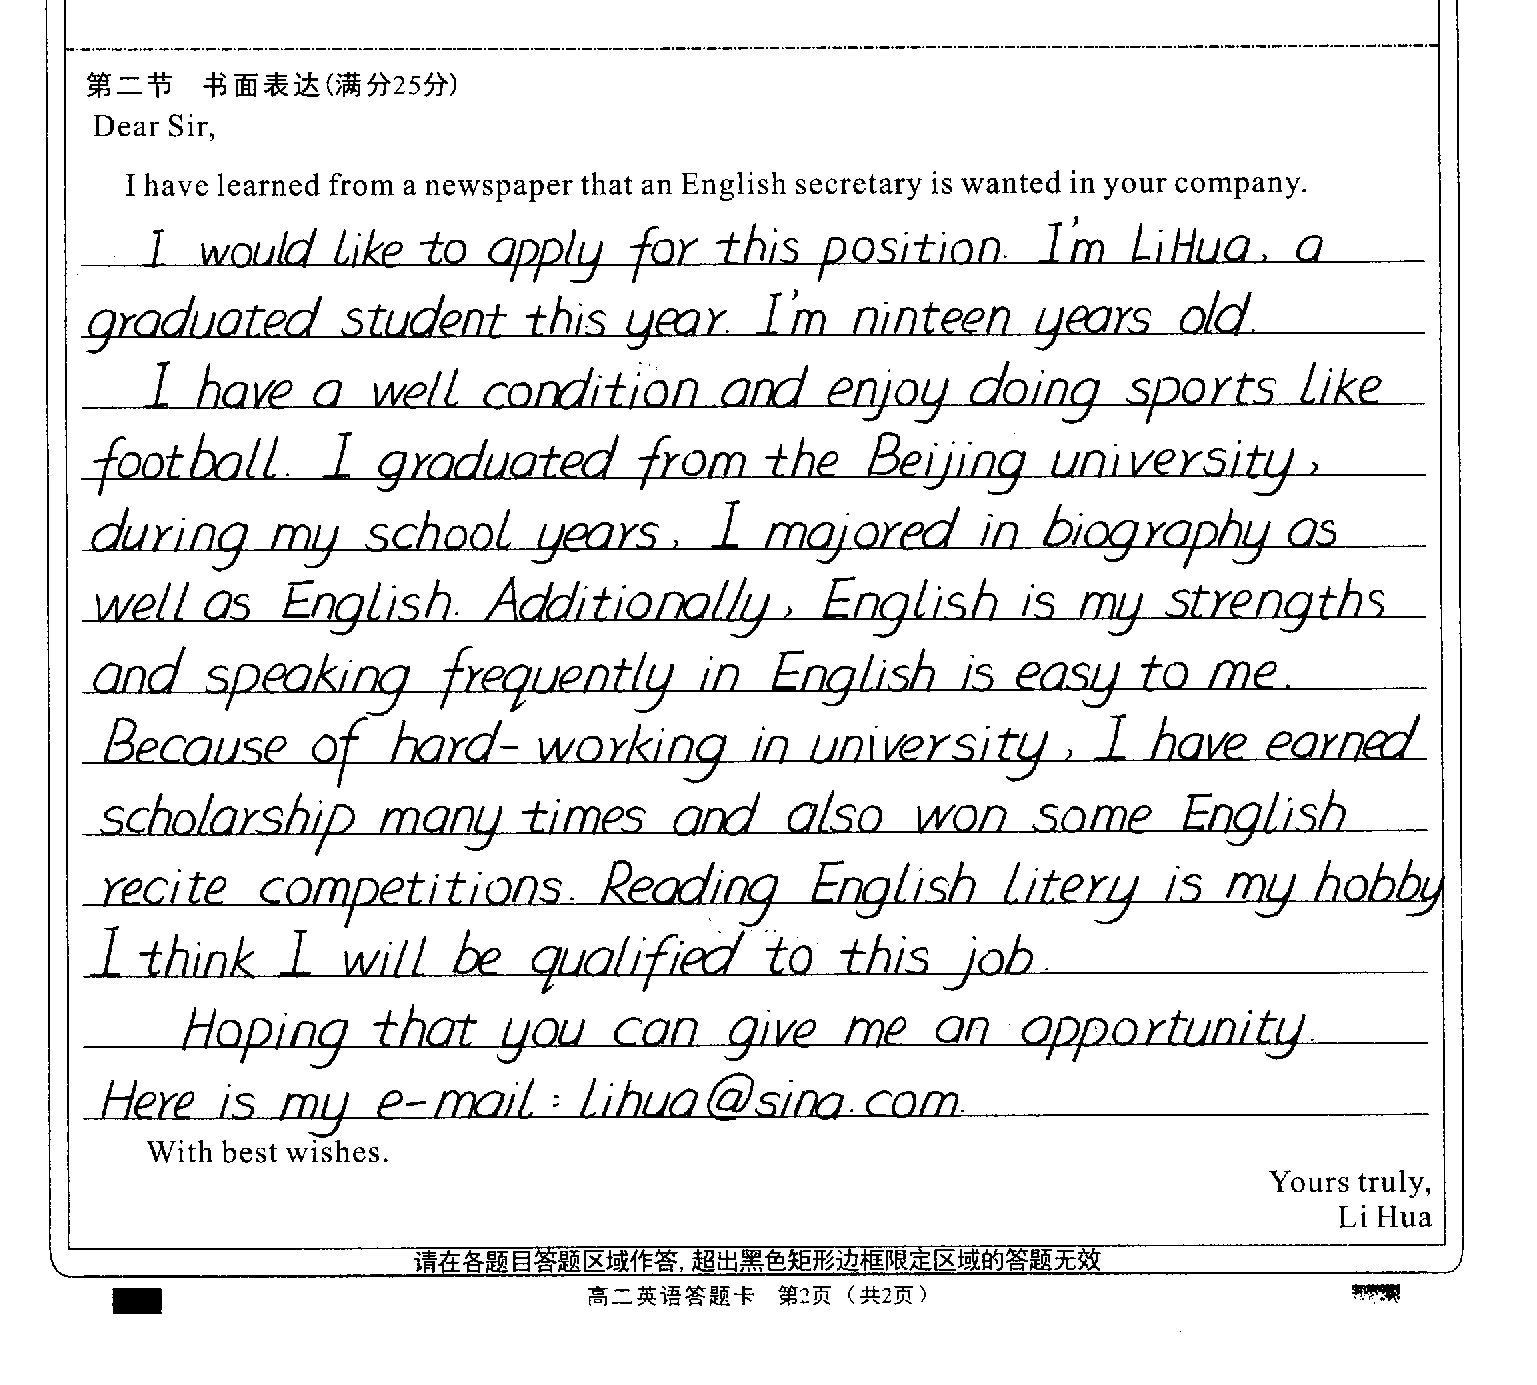 第二节 书面表达(满分25分)
Dear Sir,
I have learned from a newspaper that an English secretary is wanted in your company.
I would like to apply for this position. I'm LiHua, a
graduated student this year. I'm ninteen years old.
I have a well condition and enjoy doing sports like
football. I graduated from the Beijing university,
during my school years, I majored in biography as
well as English. Additionally, English is my strengths
and speaking frequently in English is easy to me.
Because of hard-working in university, I have earned
scholarship many times and also won some English
recite competitions. Reading English litery is my hobby
I think I will be qualified to this job.
Hoping that you can give me an opportunity.
Here is my e-mail: lihua@sina.com.
With best wishes.
Yours truly,
Li Hua
请在各题目答题区域作答,超出黑色矩形边框限定区域的答题无效
高二英语答题卡 第2页（共2页）